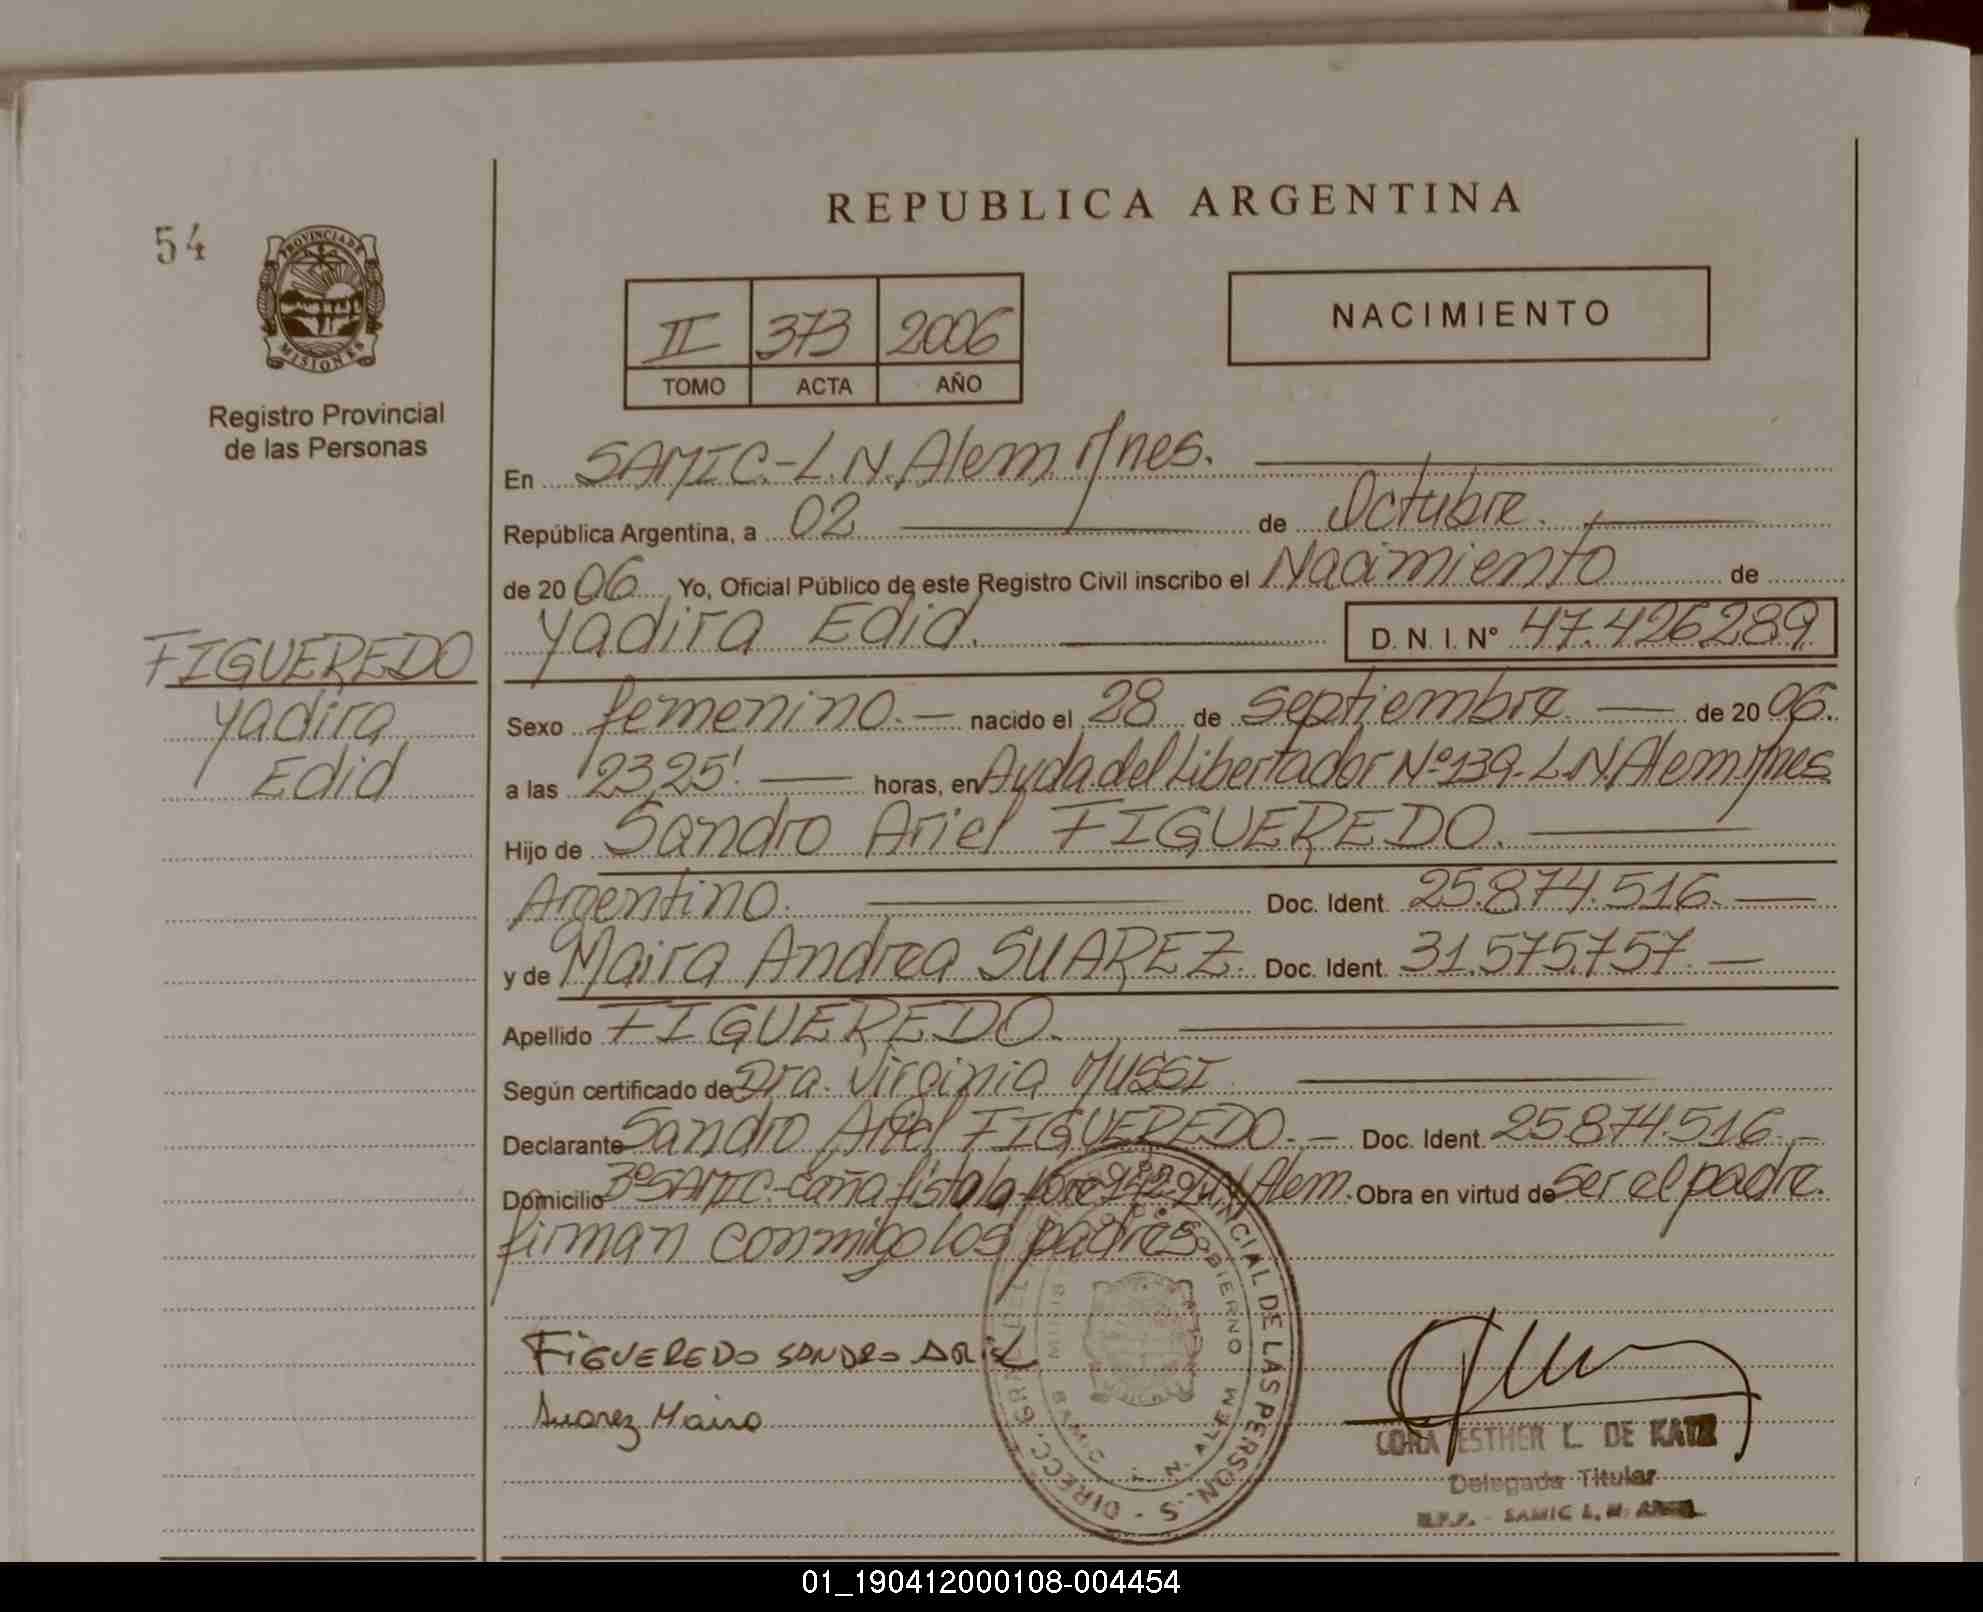 REPUBLICA ARGENTINA
54
PROVINCIA DE
MISIONES
Registro Provincial
de las Personas
II 373 2006
TOMO ACTA AÑO
NACIMIENTO
En SAMIC.-L.N.Alem Mnes.
República Argentina, a 02 de Octubre.
de 20 06 Yo, Oficial Público de este Registro Civil inscribo el Nacimiento de
Yadira Edid. D. N. I. N° 47.426289
FIGUEREDO
Yadira
Edid
Sexo femenino.- nacido el 28 de septiembre de 20 06.
a las 23,25'. horas, en Avda.del Libertador Nº139-L.N.Alem Mnes
Hijo de Sandro Ariel FIGUEREDO.
Argentino. Doc. Ident. 25.874.516.
y de Maira Andrea SUAREZ. Doc. Ident. 31.575.757.
Apellido FIGUEREDO.
Según certificado de Dra. Virginia MUSSI
Declarante Sandro Ariel FIGUEREDO.- Doc. Ident. 25874.516.-
Domicilio Bº SAMIC-caña fistola L.N. Alem. Obra en virtud de ser el padre.
firman conmigo los padres.
FIGUEREDO SANDRO ARIEL
Suarez Maira
DE LAS PERSON S - DIRECC. GRAL DEL
GOBIERNO
N. ALEM
CORA ESTHER L. DE KATZ
Delegada Titular
R.P.P. - SAMIC L. N. ALEM
01_190412000108-004454